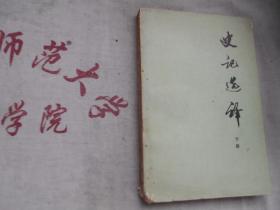 师范大学
学院
史记选译
下册